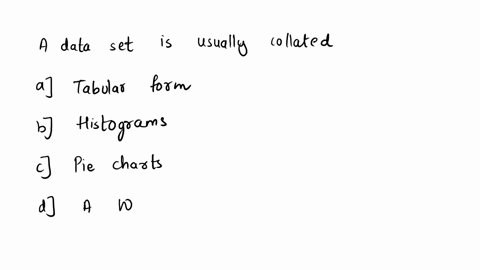 A data set is usually collated
a] Tabular form
b] Histograms
c] Pie charts
d] A W